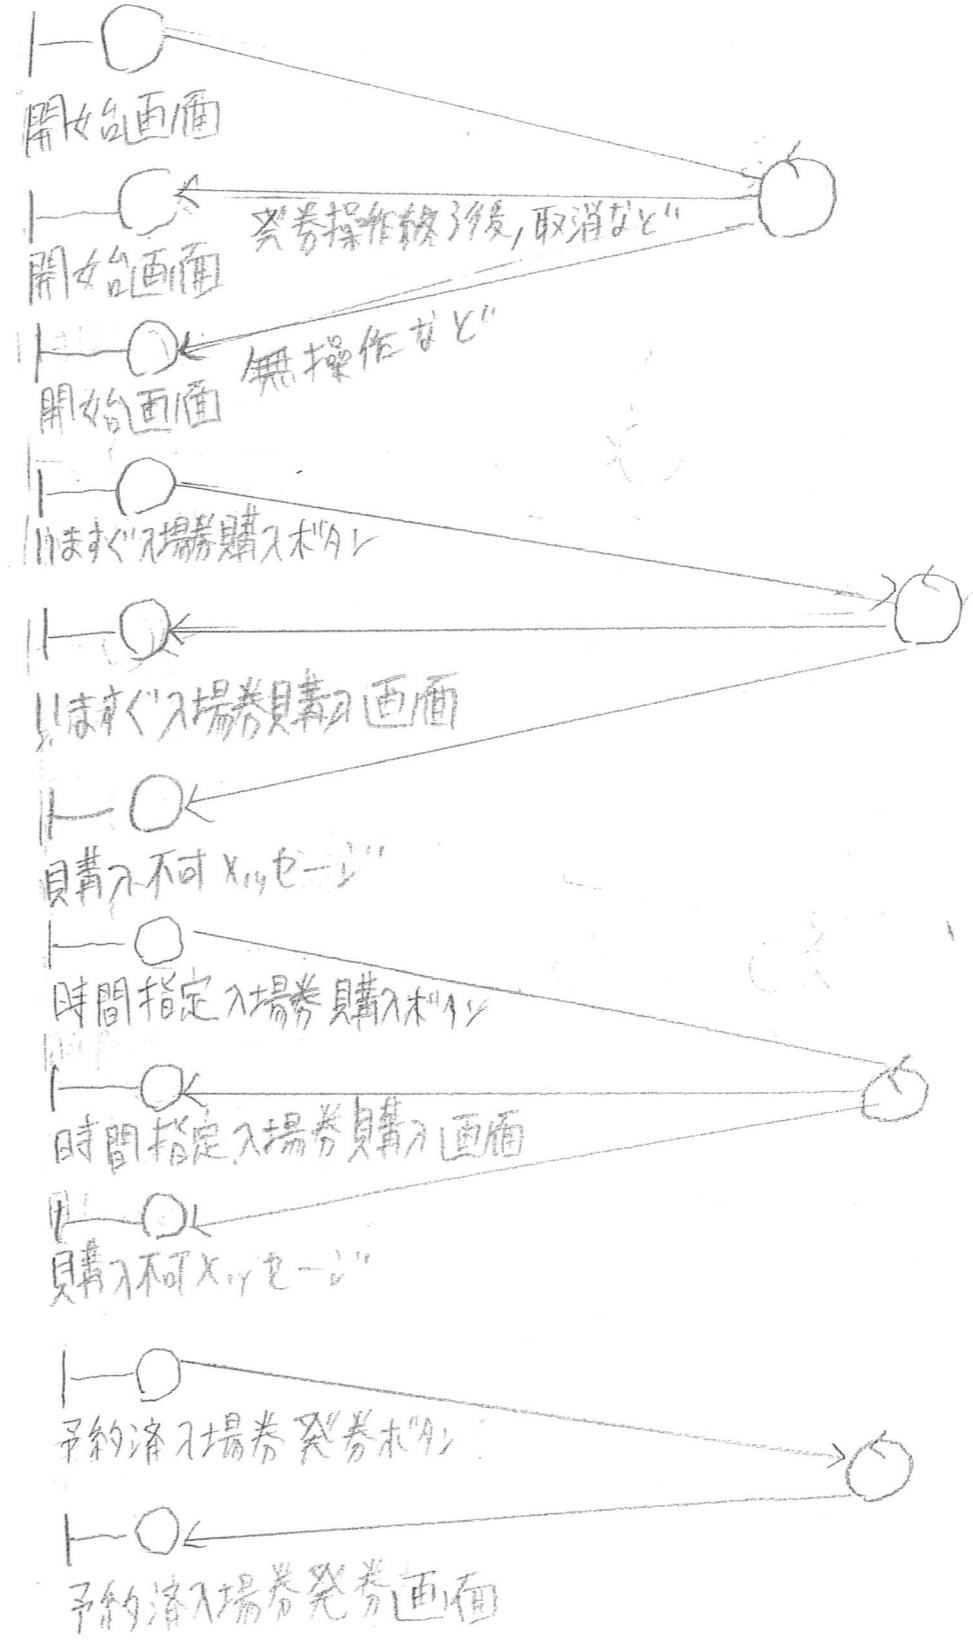 開始画面
発券操作終了後,取消など
開始画面
無操作など
開始画面
いますぐ入場券購入ボタン
いますぐ入場券購入画面
購入不可メッセージ
時間指定入場券購入ボタン
時間指定入場券購入画面
購入不可メッセージ
予約済入場券発券ボタン
予約済入場券発券画面